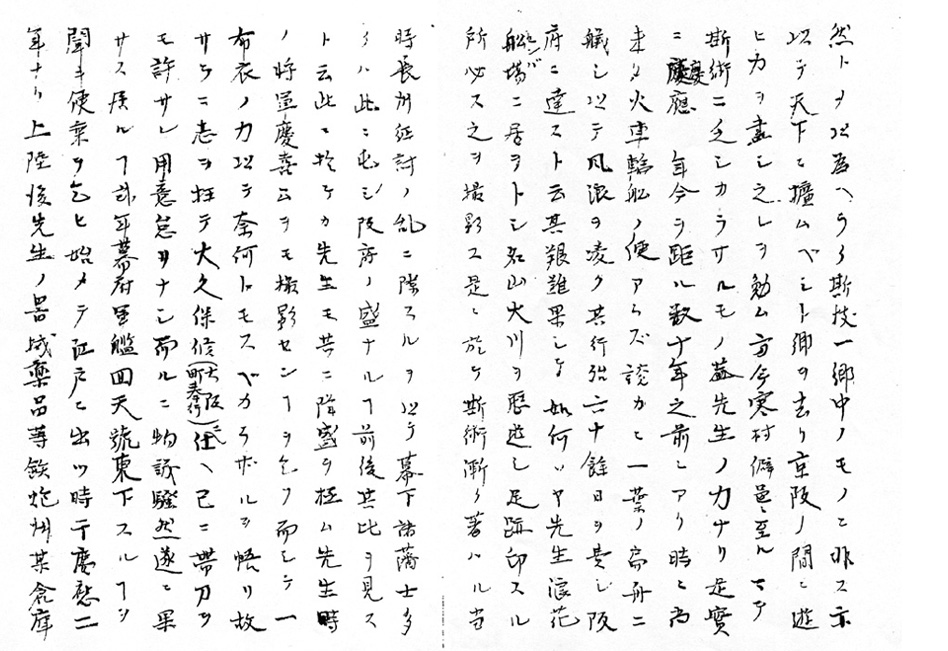 然トメ以為ヘラク斯技一郷中ノモノニ非ス亦
以テ天下ニ擴ムベシト郷ヲ去リ京阪ノ間ニ遊
ヒカヲ盡シ之レヲ勉ム方今寒村僻邑ニ至ルマテ
斯術ニ乏シカラサルモノ蓋先生ノ力ナリ是實
ニ慶應 年今ヲ距ル数十年之前ニアリ時ニ尚
未タ火車輪船ノ便アラズ讃カニ一葉ノ扁舟ニ
艤シ以テ風浪ヲ凌ク其行殆六十餘日ヲ費シ阪
府ニ達スト云其艱難果シテ如何ソヤ先生浪花
船場ニ居ヲトシ名山大川ヲ歴遊シ足跡印スル
センバ
所必ス之ヲ撮影ス是ニ於テ斯術漸ク著ハル当
時長州征討ノ乱ニ際スルヲ以テ幕下諸藩士多
クハ此ニ屯シ阪府ノ盛ナルヿ前後其比ヲ見ス
ト云此ニ於テカ先生モ共ニ隆盛ヲ極ム先生時
ノ将軍慶喜公ヲモ撮影センヿヲ乞フ而シテ一
布衣ノ力以テ奈何トモスベカラザルヲ悟リ故
サラニ志ヲ枉テ大久保修(大阪町奉行)ニ仕ヘ已ニ帯刀ヲ
モ許サレ用意怠リナシ而ルニ物議騒然遂ニ果
サス偶ル丁卯年幕府軍艦回天號東下スルヿヲ
聞キ便乗ヲ乞ヒ始メテ江戸ニ出ツ時于慶應二
年ナリ上陸後先生ノ器械藥品等鉄炮州某倉庫